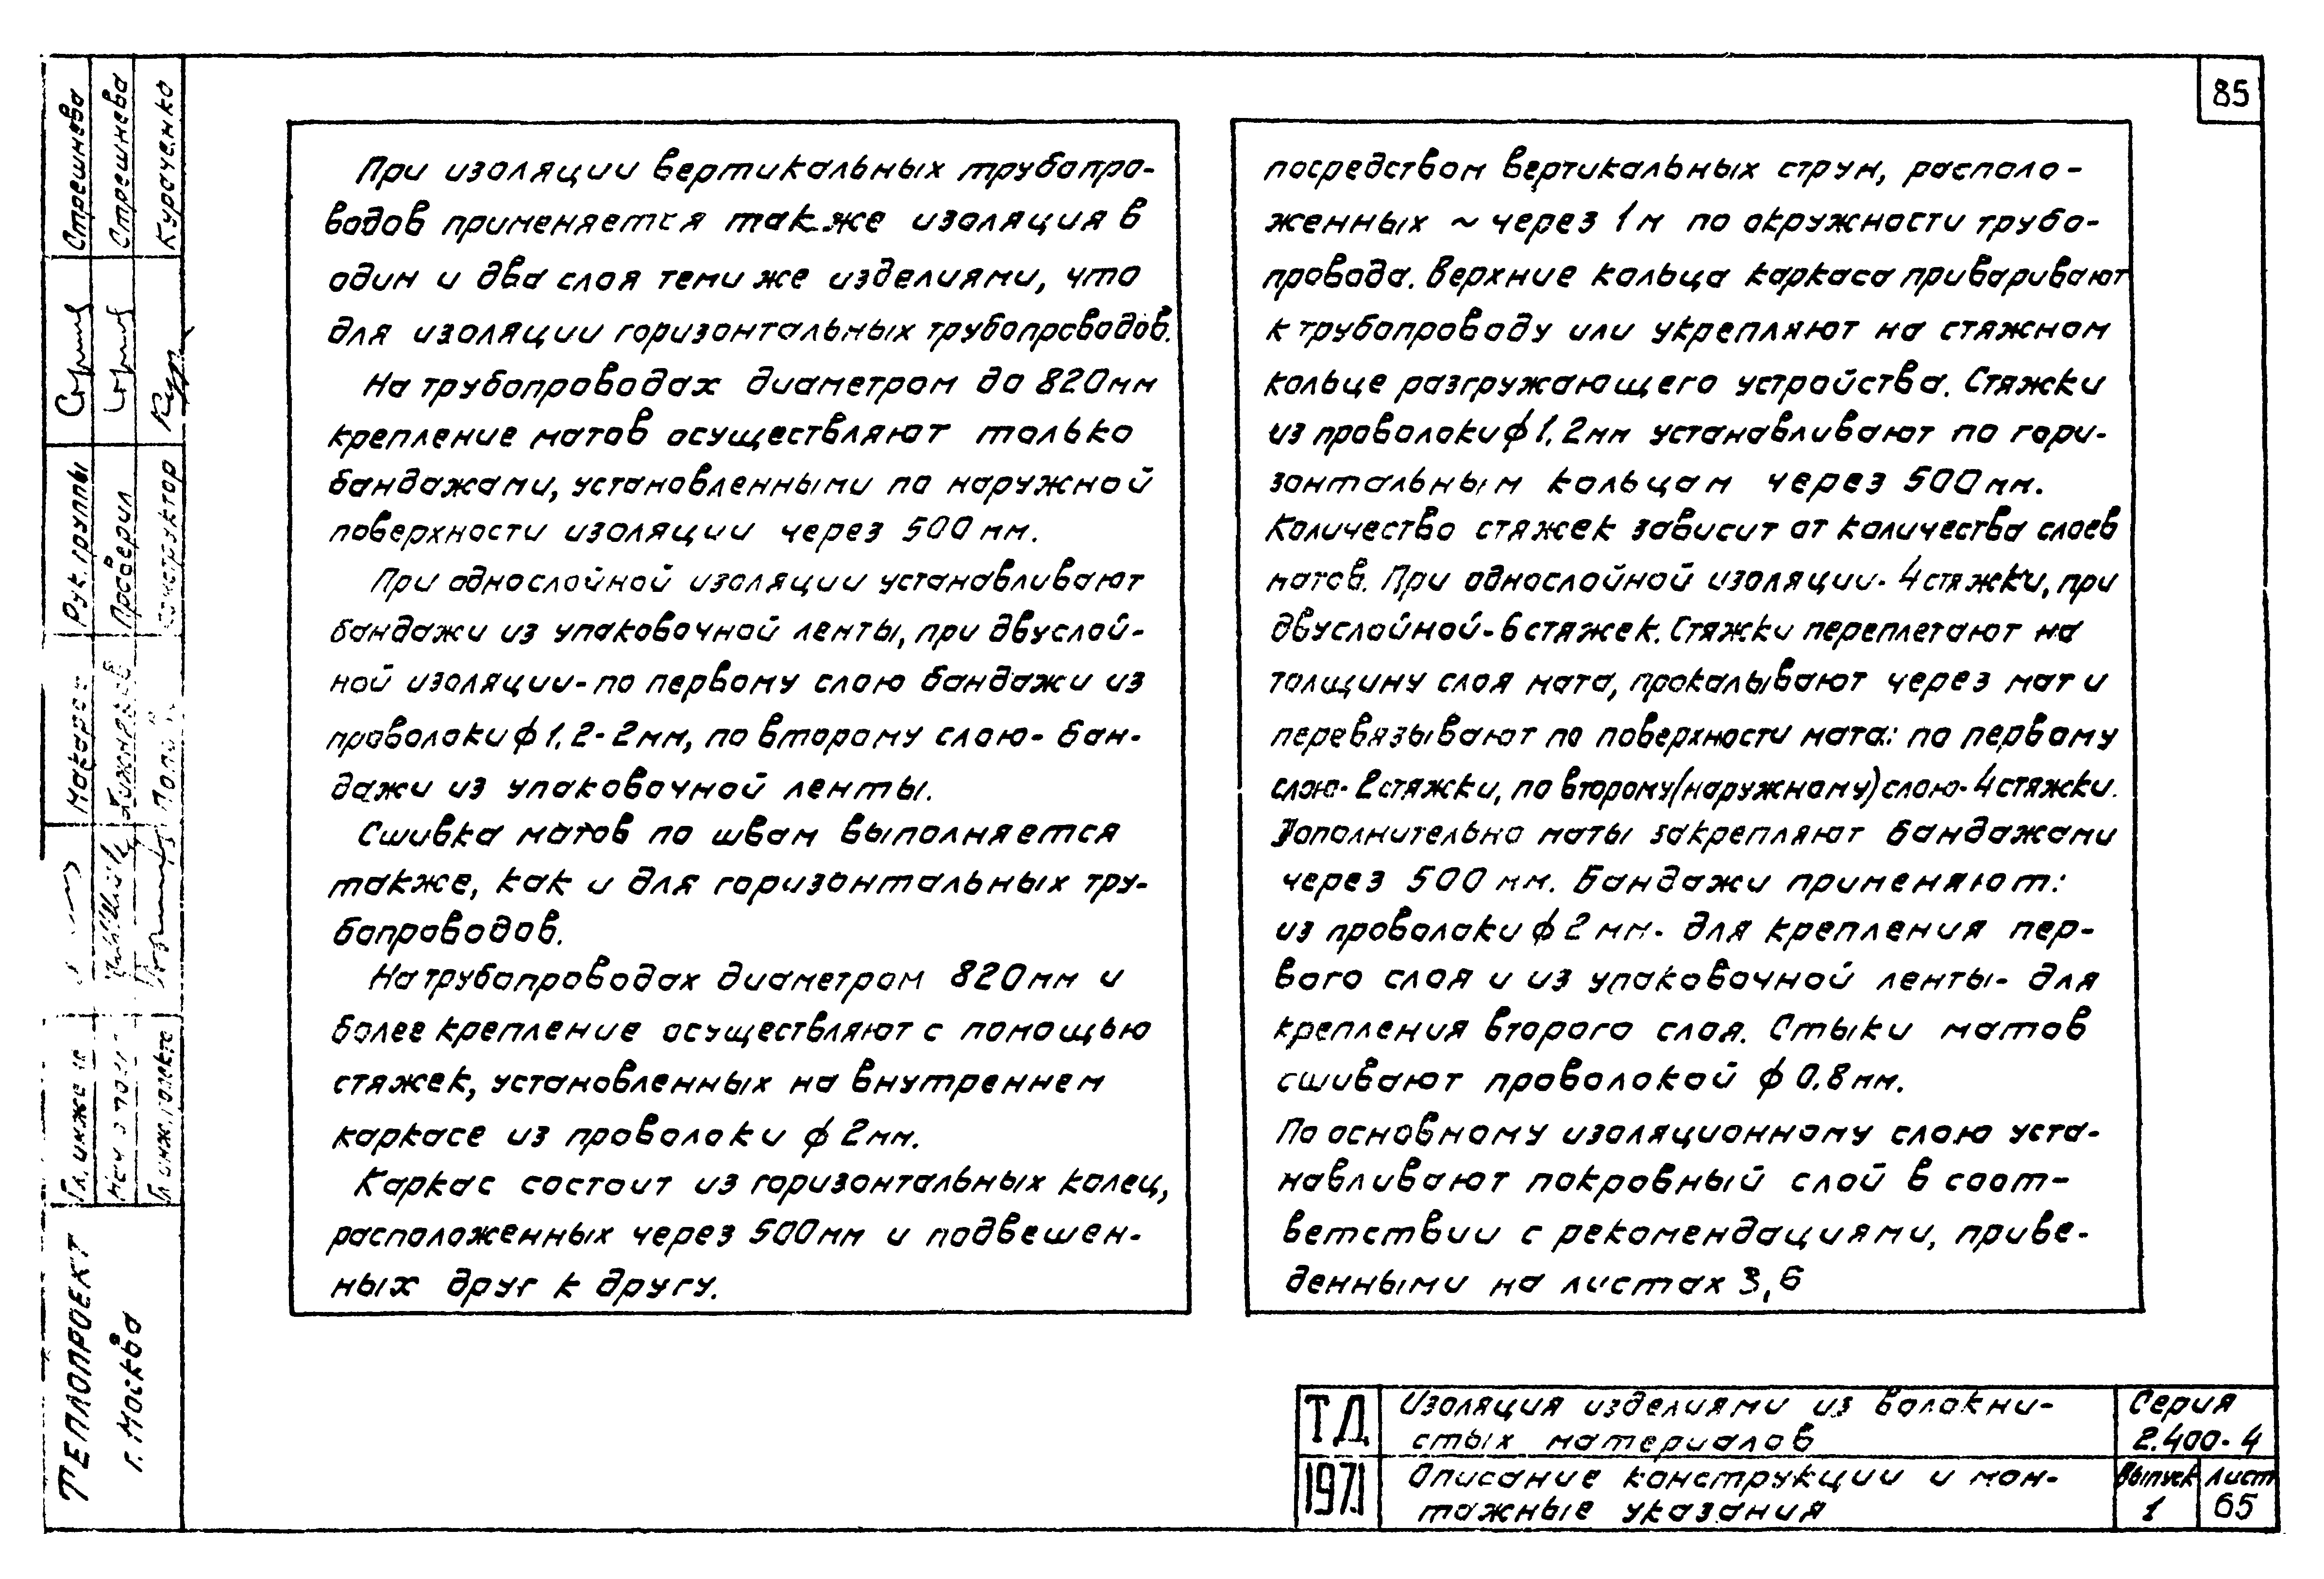 85
При изоляции вертикальных трубопро-
водов применяется также изоляция в
один и два слоя теми же изделиями, что
для изоляции горизонтальных трубопроводов.
На трубопроводах диаметром до 820мм
крепление матов осуществляют только
бандажами, установленными по наружной
поверхности изоляции через 500 мм.
При однослойной изоляции устанавливают
бандажи из упаковочной ленты, при двуслой-
ной изоляции-по первому слою бандажи из
проволоки ф 1,2-2мм, по второму слою- бан-
дажи из упаковочной ленты.
Сшивка матов по швам выполняется
также, как и для горизонтальных тру-
бопроводов.
На трубопроводах диаметром 820мм и
более крепление осуществляют с помощью
стяжек, установленных на внутреннем
каркасе из проволоки ф 2мм.
Каркас состоит из горизонтальных колец,
расположенных через 500мм и подвешен-
ных друг к другу.
посредством вертикальных струн, располо-
женных ~ через 1м по окружности трубо-
провода. Верхние кольца каркаса приваривают
к трубопроводу или укрепляют на стяжном
кольце разгружающего устройства. Стяжки
из проволоки ф 1,2мм устанавливают по гори-
зонтальным кольцам через 500мм.
Количество стяжек зависит от количества слоев
матов. При однослойной изоляции- 4 стяжки, при
двуслойной-6 стяжек. Стяжки переплетают на
толщину слоя мата, прокалывают через мат и
перевязывают по поверхности мата: по первому
слою- 2 стяжки, по второму (наружному) слою-4 стяжки.
Дополнительно маты закрепляют бандажами
через 500 мм. Бандажи применяют:
из проволоки ф 2 мм- для крепления пер-
вого слоя и из упаковочной ленты- для
крепления второго слоя. Стыки матов
сшивают проволокой ф 0,8мм.
По основному изоляционному слою уста-
навливают покровный слой в соот-
ветствии с рекомендациями, приве-
денными на листах 3,6
Стрешнева
Стрешнева
Кураченко
Рук. группы
Проверил
Конструктор
Гл. инж. проекта
ТЕПЛОПРОЕКТ
г. Москва
ТД
1971
Изоляция изделиями из волокни-
стых материалов
Описание конструкции и мон-
тажные указания
Серия
2.400-4
Выпуск
1
Лист
65